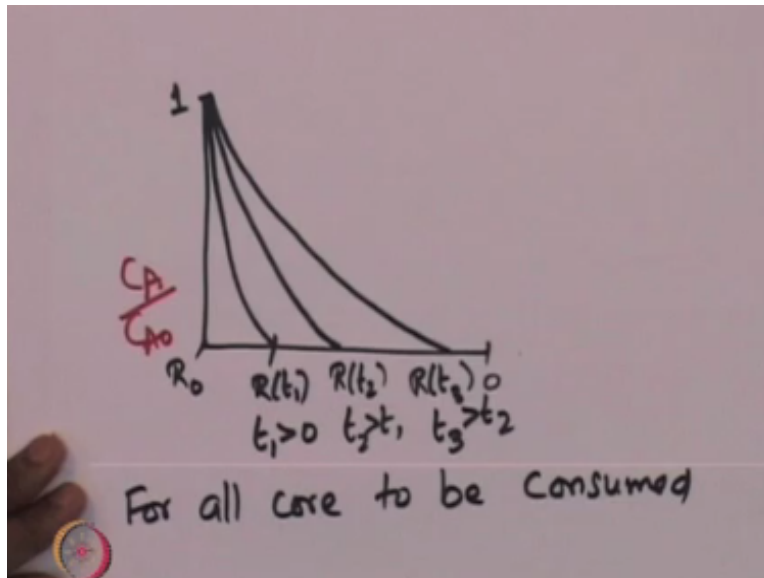 1
CA
CA0
R0 R(t1) R(t2) R(t3) 0
t1>0 t2>t1 t3>t2
For all core to be consumed